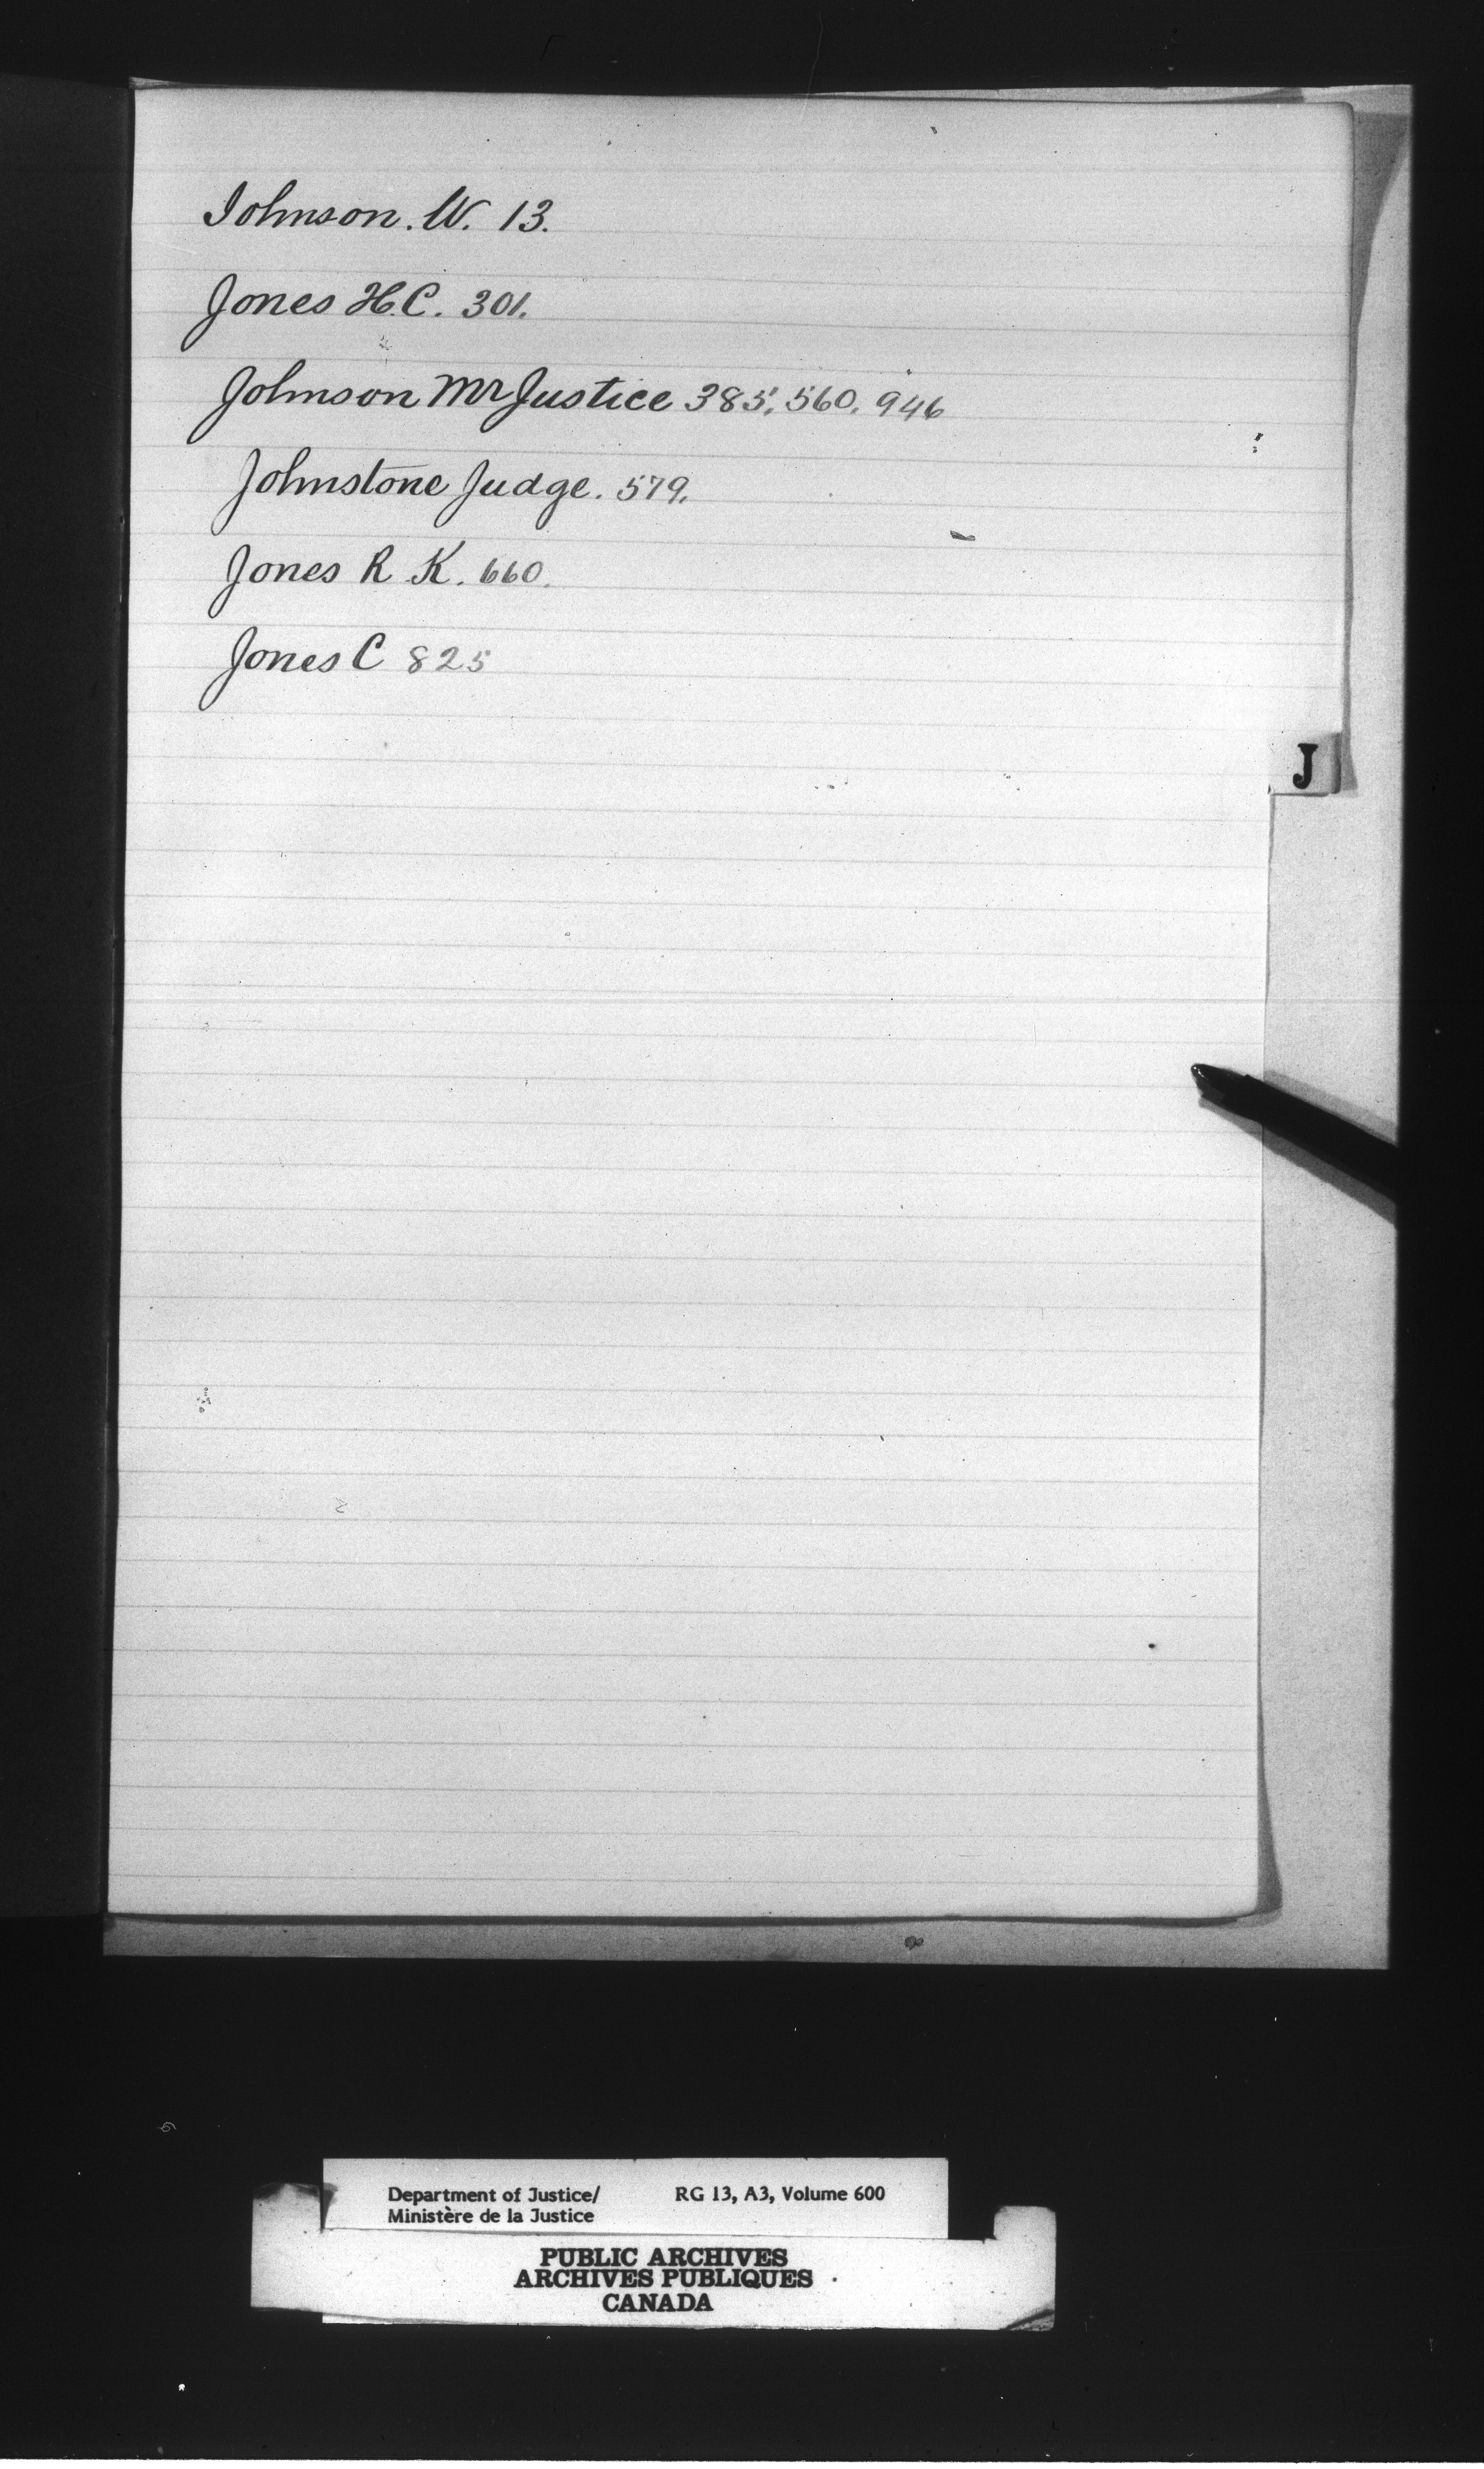 Johnson. W. 13.
Jones H.C. 301.
Johnson Mr Justice 385, 560, 946
Johnstone Judge. 579.
Jones R. K. 660.
Jones C 825
J
Department of Justice/ RG 13, A3, Volume 600
Ministère de la Justice
PUBLIC ARCHIVES
ARCHIVES PUBLIQUES
CANADA